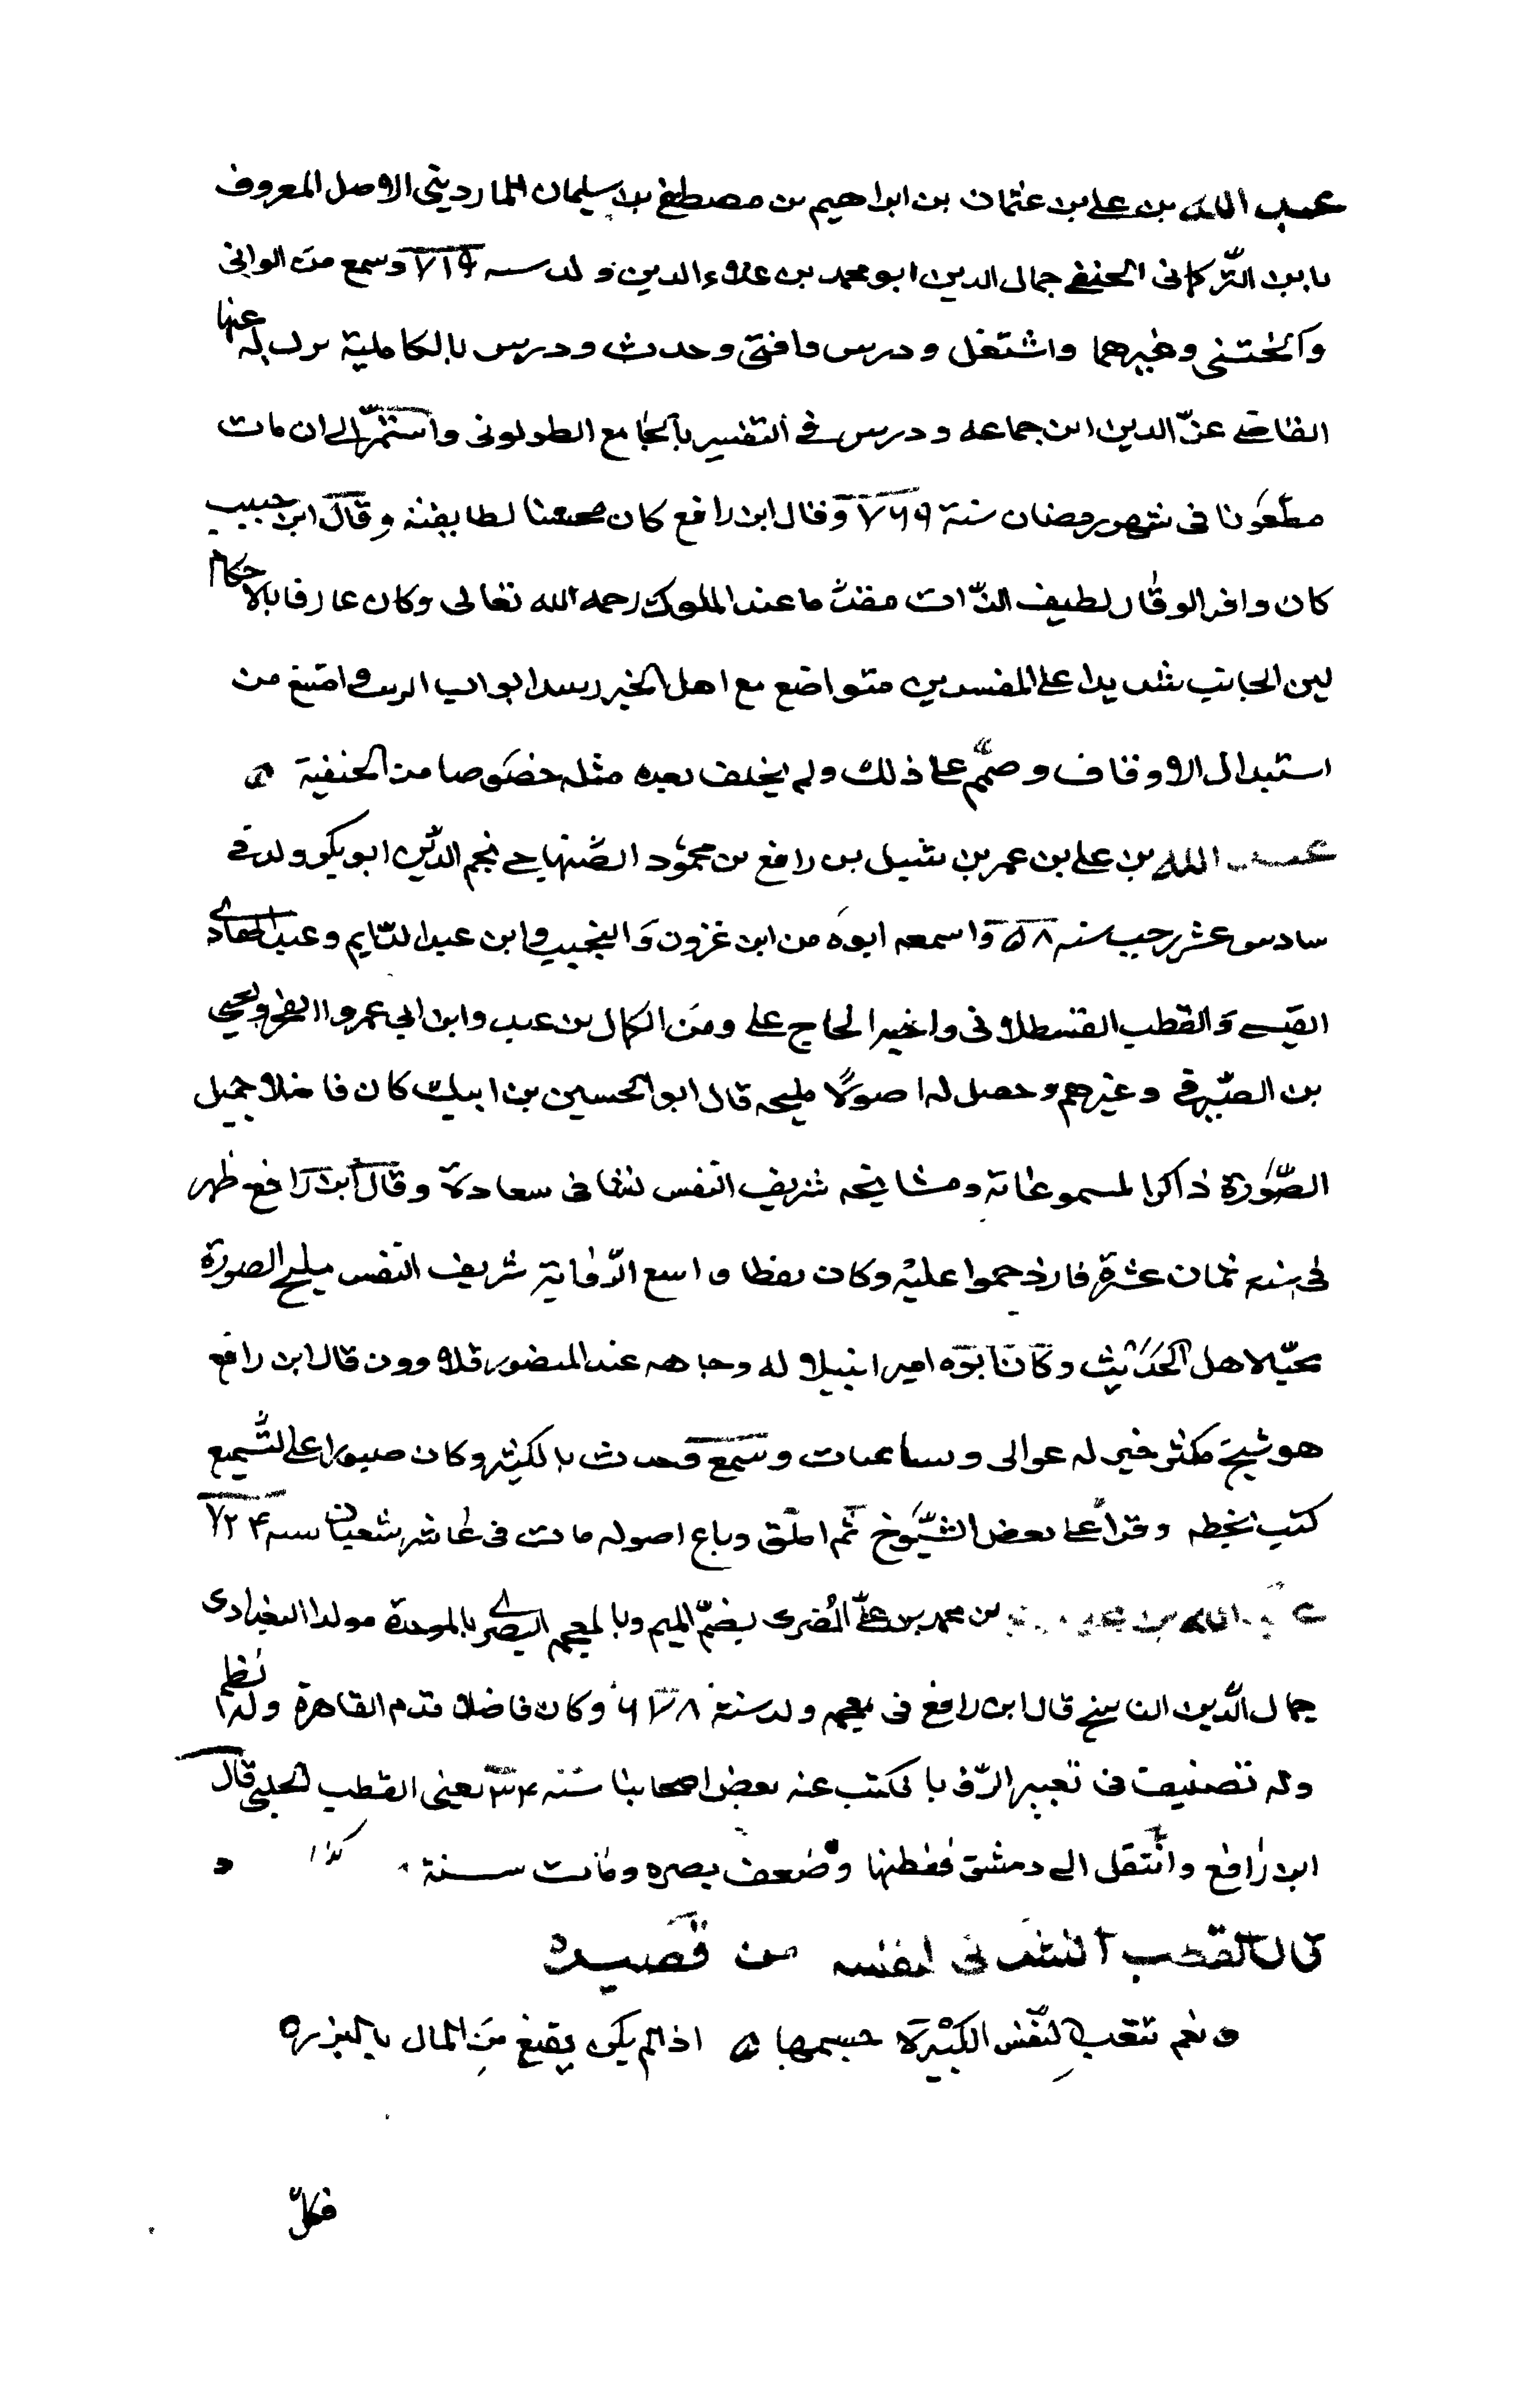 عبد الله بن علي بن عثمان بن ابراهيم بن مصطفى بن سليمان المارديني الاصل المعروف
بابن التركماني الحنفي جمال الدين ابو محمد بن علاء الدين ولد سنه ٧١٩ وسمع من الواني
والختني وغيرهما واشتغل ودرس وافتى وحدث ودرس بالكاملية نزل له عنها
القاضي عز الدين ابن جماعه ودرس في التفسير بالجامع الطولوني واستمر الى ان مات
مطعونا في شهر رمضان سنة ٧٦٩ وقال ابن رافع كان محسنا لطايفته وقال ابن حبيب
كان وافر الوقار لطيف الذات مقدما عند الملوك رحمه الله تعالى وكان عارفا بالاحكام
لين الجانب شديدا على المفسدين متواضع مع اهل الخير وسد ابواب الريب وامتنع من
استبدال الاوقاف وصمم على ذلك ولم يخلف بعده مثله خصوصا من الحنفية
عبد الله بن علي بن عمر بن شبل بن رافع بن محمود الصنهاجي نجم الدين ابو بكر ولد في
سادس عشر رجب سنه ٥٨ واسمعه ابوه من ابن غزون والنجيب وابن عبد الدايم وعبد الهادي
القيسي والقطب القسطلاني واخيه الحاج علي ومن الكمال بن عبد وابن ابي عمرو والفخر ويحيى
بن الصيرفي وغيرهم وحصل له اصولا مليحه قال ابو الحسين بن ايبك كان فاضلا جميل
الصورة ذاكرا لمسموعاته ومشايخه شريف النفس نشا في سعادة وقال ابن رافع ظهر
في سنه ثمان عشرة فازدحموا عليه وكان يقظا واسع الرواية شريف النفس مليح الصورة
محبا لاهل الحديث وكان ابوه اميرا نبيلا له وجاهه عند المنصور قلاوون قال ابن رافع
هو شيخ مكثر خير له عوالي وسباعيات وسمع وحدث بالكثير وكان صبورا على التسميع
كتب بخطه وقرأ على بعض الشيوخ ثم املق وباع اصوله مات في عاشر شعبان سنه ٧٢٤
الله بن محمد بن علي المضري بضم الميم وبالمعجمه البصري بالموحدة مولدا البغدادي
جمال الدين الناسخ قال ابن رافع في معجمه ولد سنة ٦٧٨ وكان فاضلا قدم القاهرة وله نظم
وله تصنيف في تعبير الرؤيا كتب عنه بعض اصحابنا سنه ٣٤ يعني القطب الحلبي قال
ابن رافع وانتقل الى دمشق فقطنها وضعف بصره ومات سنة كذا
قال القطب انشدني لنفسه من قصيده
ونعم تتعب النفس الكبيرة جسمها اذا لم يكن يقنع من المال بالنزره
فكل